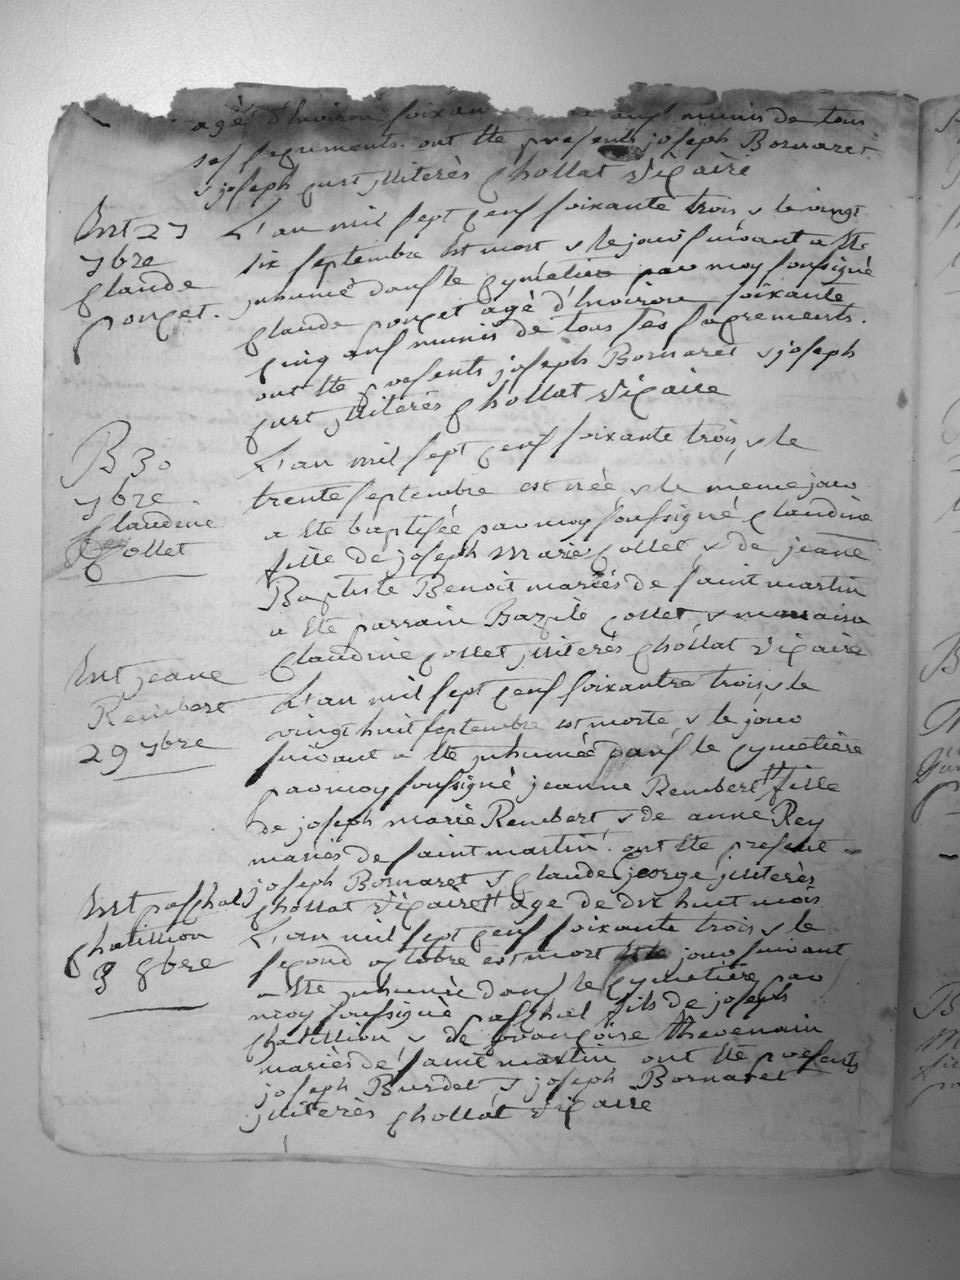 agé d'huiron soixan ans munis de tous
ses sacrements. ont ete presents joseph Bornaret
& joseph curt jlliterés Chollat vicaire
Ent 27
7bre
Claude
poncet.
L'an mil sept cens soixante trois, & le vingt
six septembre est mort & le jour suivant a ete
jnhumé dans le cymetiere par moy soussigné
Claude poncet agé d'huiron soixante
cinq ans munis de tous ses sacrements.
ont ete presents joseph Bornaret & joseph
curt jlliterés Chollat vicaire
B 30
7bre
Claudine
Collet
L'an mil sept cens soixante trois, & le
trente septembre est née, & le meme jour
a ete baptisée par moy soussigné Claudine
fille de joseph marie Collet & de jeane
Baptiste Benoit mariés de saint martin
a ete parrain Bazile Collet, & marraine
Claudine Collet jlliterés Chollat vicaire
Ent jeane
Rembert
29 7bre
L'an mil sept cens soixantre trois, & le
vingt huit septembre est morte, & le jour
suivant a ete jnhumée dans le cymetière
par moy soussigné jeanne Rembert # fille
de joseph marie Rembert & de anne Rey
mariés de saint martin. ont ete present
joseph Bornaret & Claude george jlliterés
Chollat vicaire # age de dix huit mois
Ent paschal
Chatillion
3 8bre
L'an mil sept cens soixante trois & le
second octobre est mort & le jour suivant
a ete jnhumé dans le cymetière par
moy soussigné paschal fils de joseph
Chatillion & de françoise thevenain
mariés de saint martin ont ete presents
joseph Burdet & joseph Bornaret
jlliterés Chollat vicaire